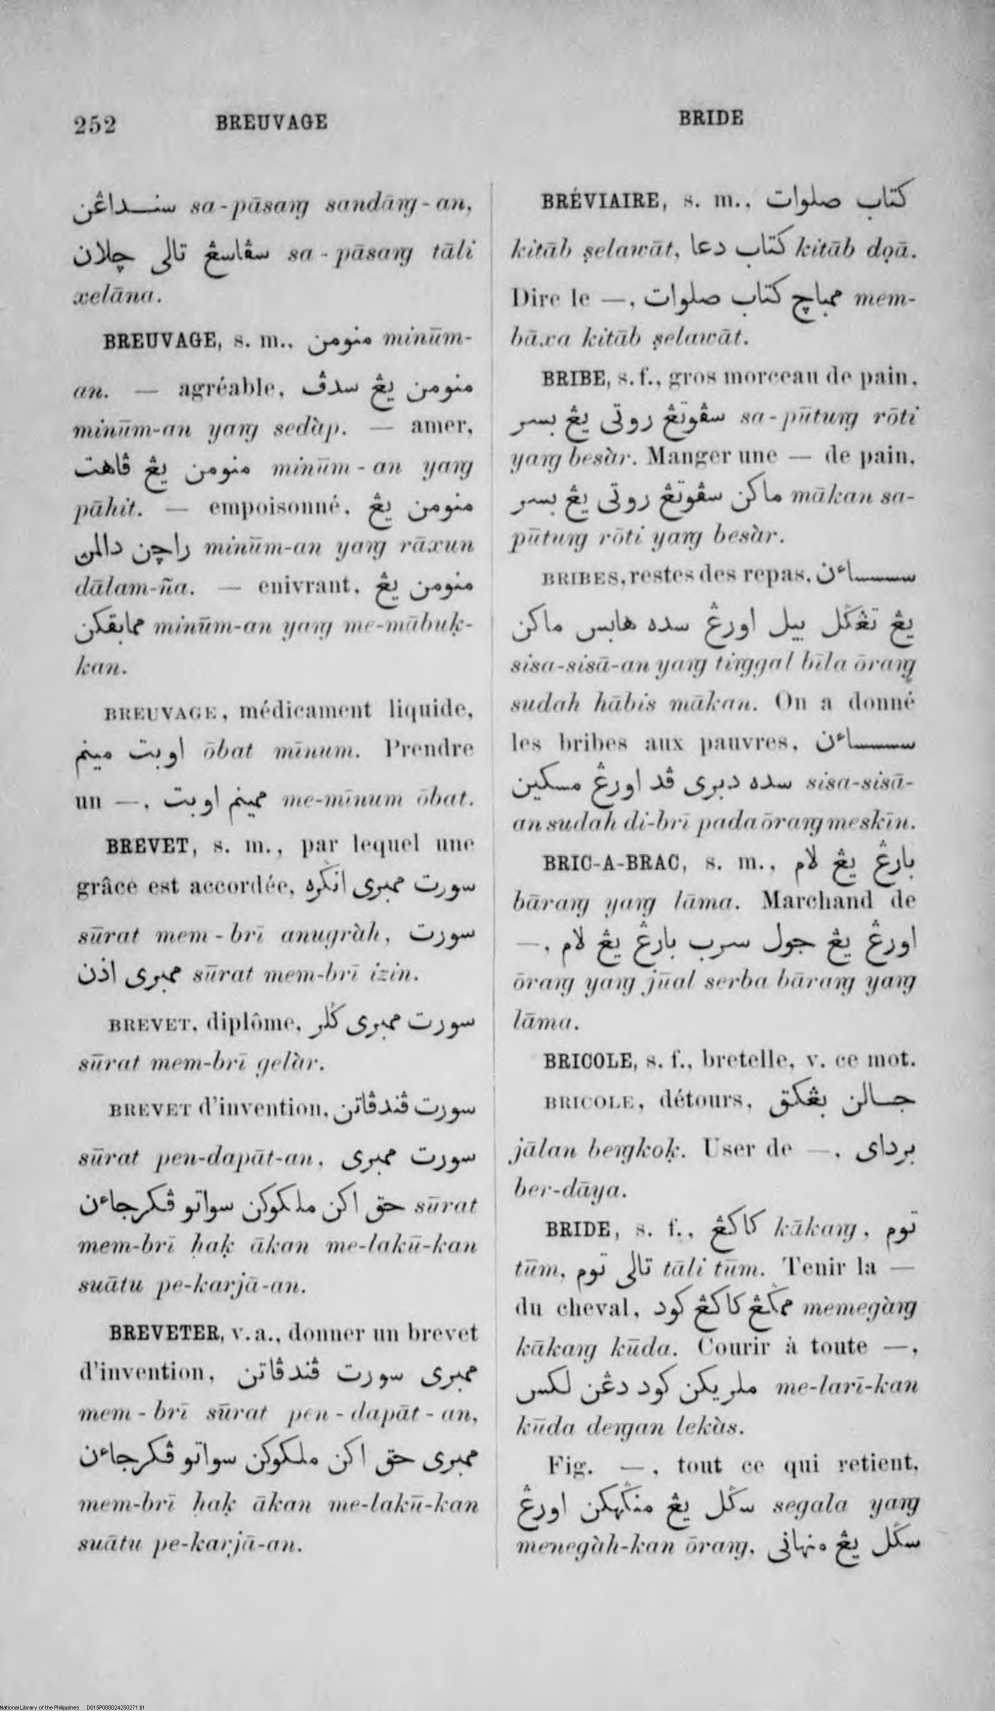 252 BREUVAGE BRIDE
سنـــداڠن sa-pāsaŋ sandāŋ-an,
سڤاسڠ تالى چلان sa-pāsaŋ tāli
xelāna.
BREUVAGE, s. m., منومن minūm-
an. — agréable, منومن يڠ سدڤ
minūm-an yaŋ sedàp. — amer,
منومن يڠ ڤاهت minūm-an yaŋ
pāhit. — empoisonné, منومن يڠ
راچن دالمڽ minūm-an yaŋ rāxun
dālam-ña. — enivrant, منومن يڠ
ممابقكن minūm-an yaŋ me-mābuḳ-
kan.
BREUVAGE, médicament liquide,
اوبت مينم ōbat mīnum. Prendre
un —, ممينم اوبت me-mīnum ōbat.
BREVET, s. m., par lequel une
grâce est accordée, سورت ممبرى انݢره
sūrat mem-brī anugràh, سورت
ممبرى اذن sūrat mem-brī izin.
BREVET, diplôme, سورت ممبرى ݢلر
sūrat mem-brī gelàr.
BREVET d'invention, سورت ڤندڤاتن
sūrat pen-dapāt-an, سورت ممبرى
حق اكن ملكوكن سواتو ڤكرجاءن sūrat
mem-brī ḥaḳ ākan me-lakū-kan
suātu pe-karjā-an.
BREVETER, v. a., donner un brevet
d'invention, ممبرى سورت ڤندڤاتن
mem-brī sūrat pen-dapāt-an,
ممبرى حق اكن ملكوكن سواتو ڤكرجاءن
mem-brī ḥaḳ ākan me-lakū-kan
suātu pe-karjā-an.
BRÉVIAIRE, s. m., كتاب صلوات
kitāb ṣelawāt, كتاب دعا kitāb dọā.
Dire le —, ممباچ كتاب صلوات mem-
bāxa kitāb ṣelawāt.
BRIBE, s. f., gros morceau de pain,
سڤوتڠ روتى يڠ بسر sa-pūtuŋ rōti
yaŋ besàr. Manger une — de pain,
ماكن سڤوتڠ روتى يڠ بسر mākan sa-
pūtuŋ rōti yaŋ besàr.
BRIBES, restes des repas, سســـاءن
يڠ تڠݢل بيل اورڠ سده هابس ماكن
sisa-sisā-an yaŋ tiŋgal bīla ōraŋ
sudah hābis mākan. On a donné
les bribes aux pauvres, سســـاءن
سده دبرى ڤد اورڠ مسكين sisa-sisā-
an sudah di-brī pada ōraŋ meskīn.
BRIC-A-BRAC, s. m., بارڠ يڠ لام
bāraŋ yaŋ lāma. Marchand de
—, اورڠ يڠ جول سرب بارڠ يڠ لام
ōraŋ yaŋ jūal serba bāraŋ yaŋ
lāma.
BRICOLE, s. f., bretelle, v. ce mot.
BRICOLE, détours, جـالن بڠكق
jālan beŋkoḳ. User de —, برداى
ber-dāya.
BRIDE, s. f., كاكڠ kākaŋ, توم
tūm, تالى توم tāli tūm. Tenir la —
du cheval, ممݢڠ كاكڠ كود memegàŋ
kākaŋ kūda. Courir à toute —,
ملريكن كود دڠن لكس me-larī-kan
kūda deŋan lekàs.
Fig. —, tout ce qui retient,
سݢل يڠ منݢهكن اورڠ segala yaŋ
menegàh-kan ōraŋ, سݢل يڠ منهانى
National Library of the Philippines